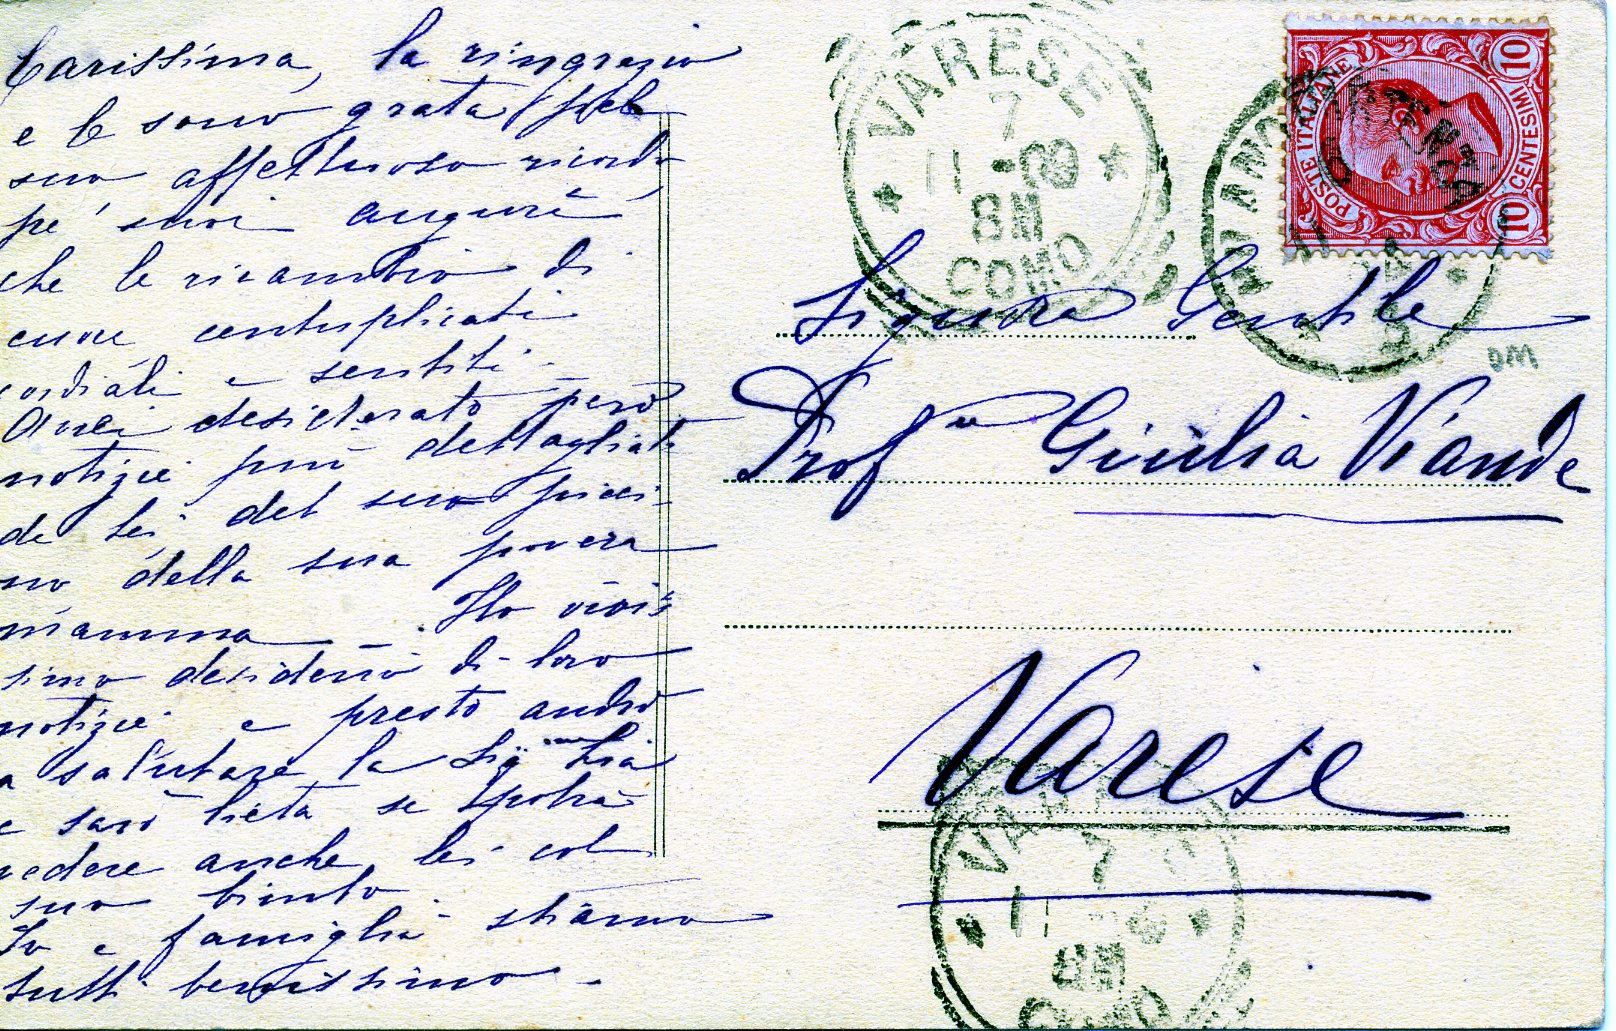 Carissima, la ringrazio
e le sono grata pel
suo affettuoso ricordo
pe' suoi augurî
che le ricambio di
cuore centuplicati
cordiali e sentiti -
Avrei desiderato però
notizie più dettagliate
di lei del suo picci-
no della sua povera
mamma. Ho vivis
simo desiderio di loro
notizie e presto andrò
a salutare la Sig Lia
e sarò lieta se potrà
vedere anche lei col
suo bimbo.
Io e famiglia stiamo
tutti benissimo -
VARESE
7
11 -09
8M
COMO
MILANO
POSTE ITALIANE
CENTESIMI
10
10
DM
Signora Gentile
Prof Giulia Viande
Varese
7
8M
COMO